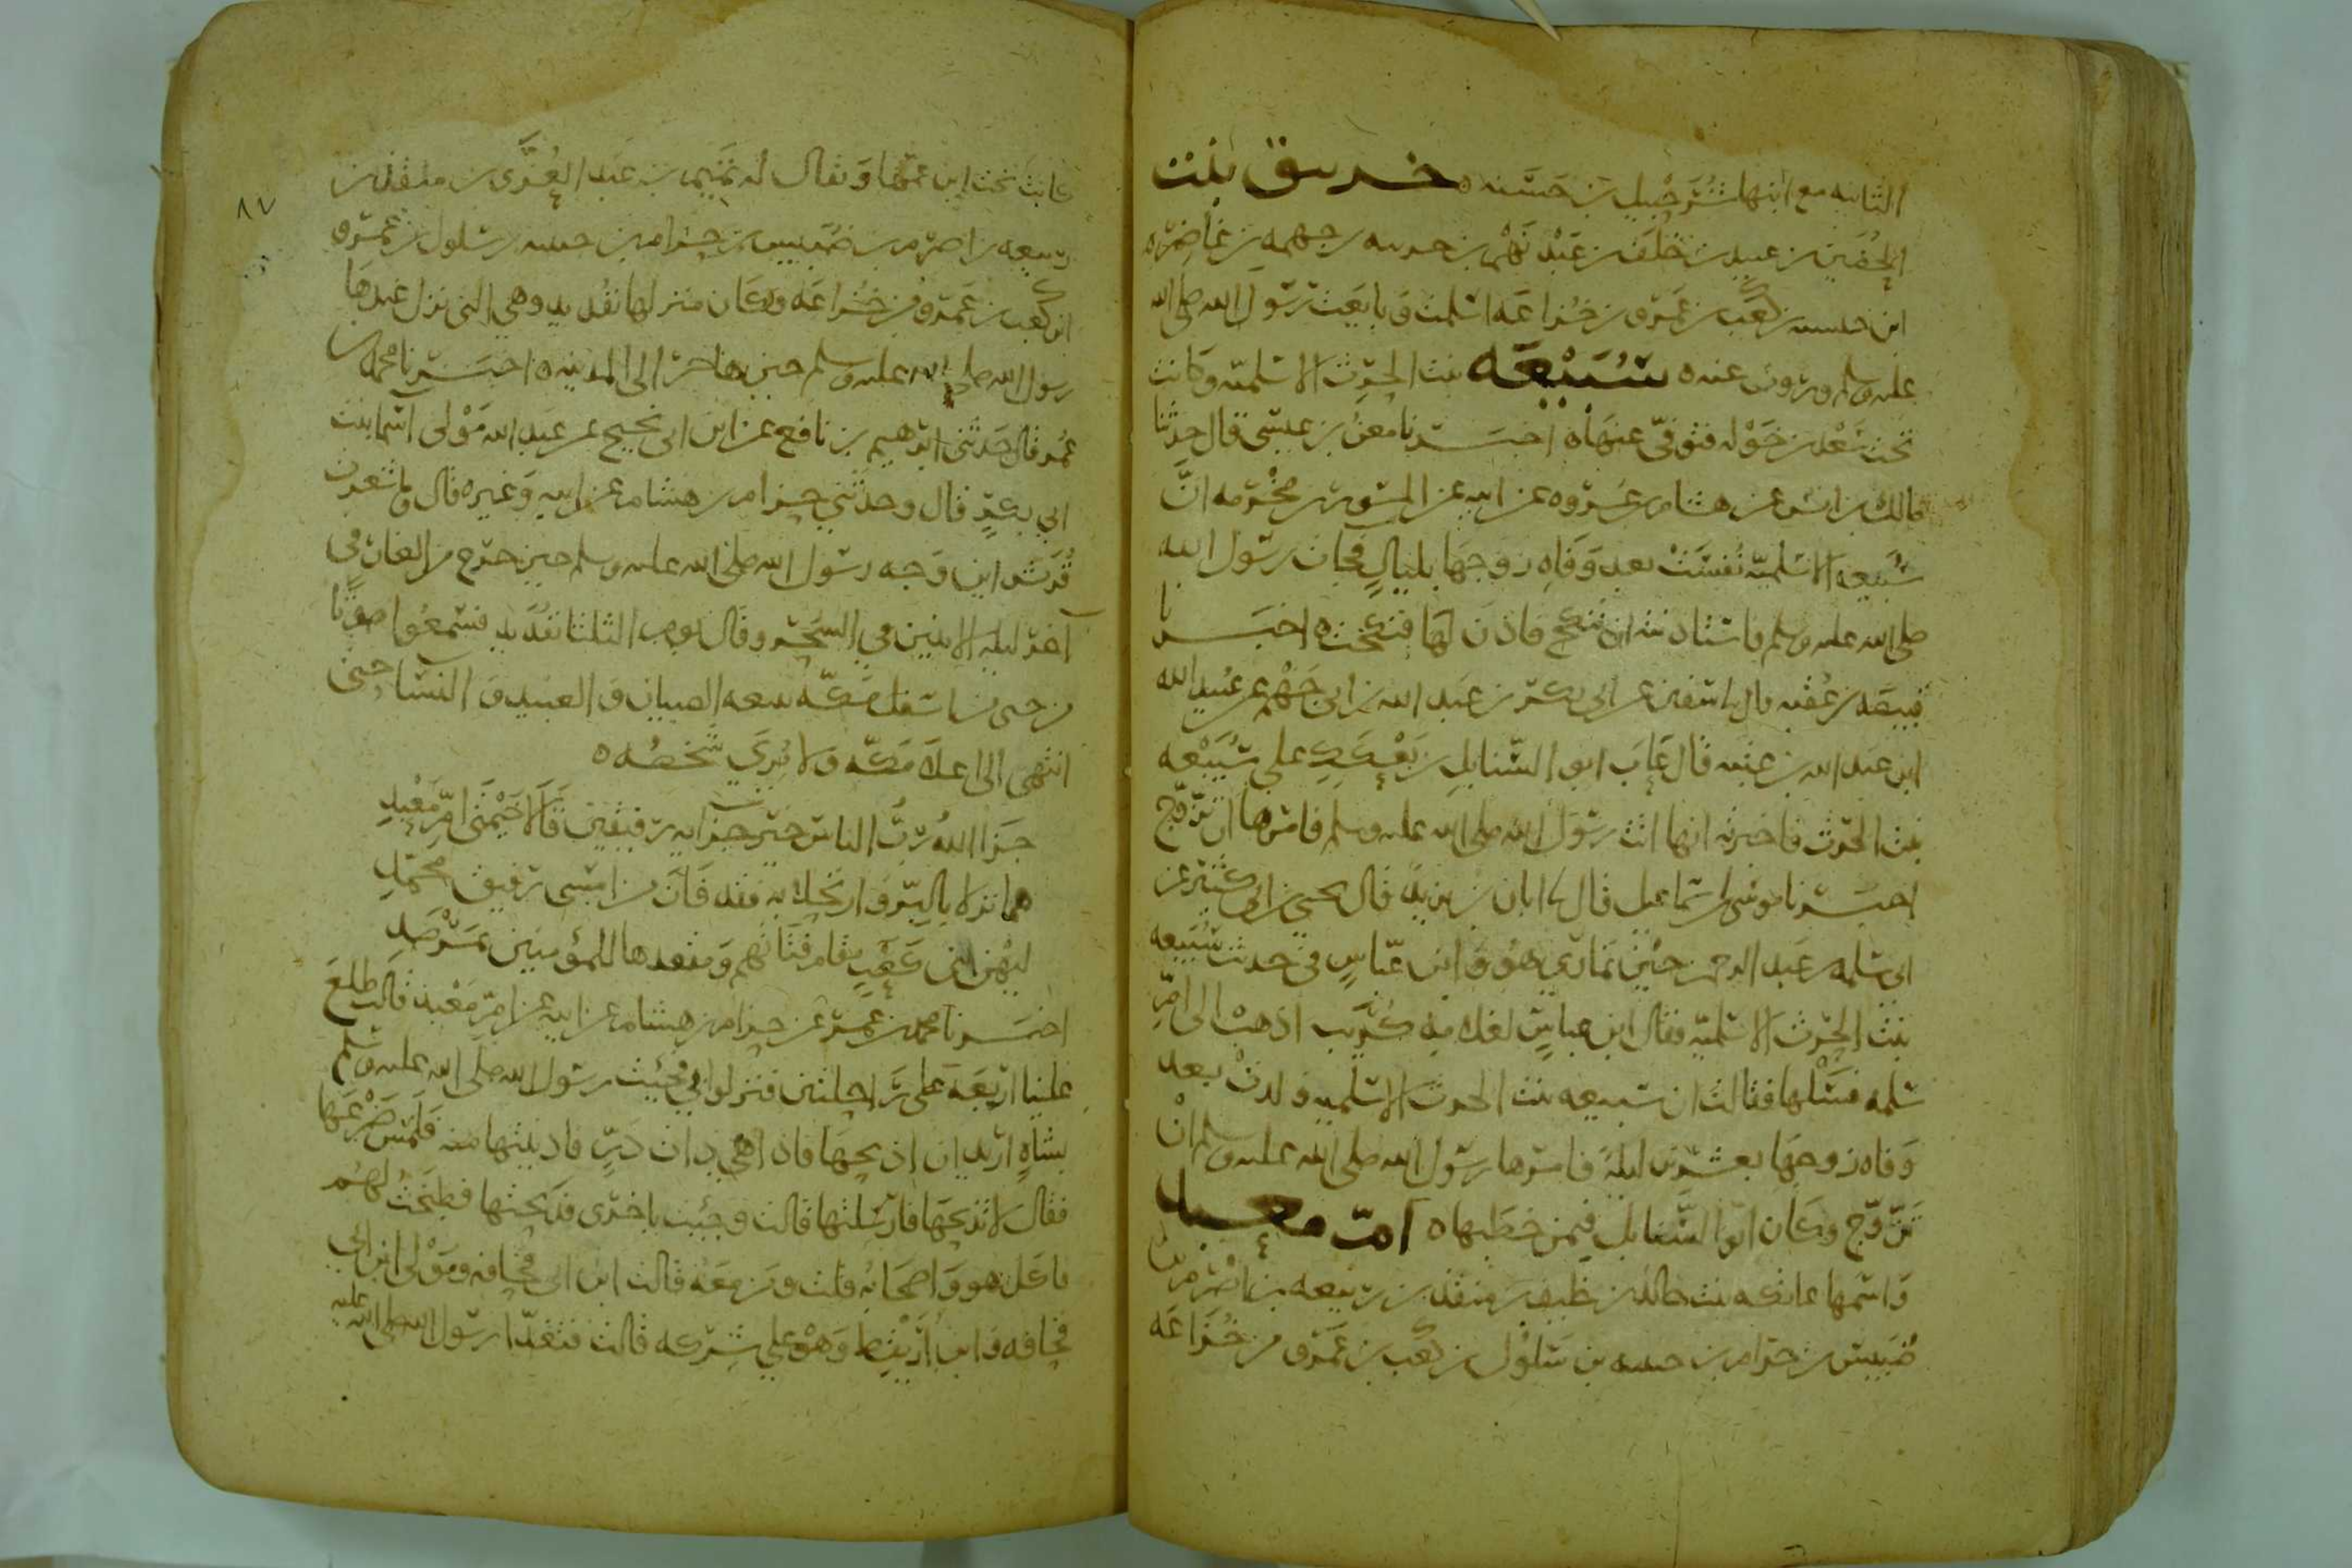 الثانيه مع ابنها شرحبيل بن حسنه ه خريق بنت
الحصين بن عبيد بن خلف بن عبد نهم بن حريبه بن جهمه بن غاضره
ابن حبشيه بن كعب بن عمرو بن خزاعه اسلمت وبايعت رسول الله صلى الله
عليه وسلم وروت عنه ه سبيعه بنت الحرث الاسلميه وكانت
تحت سعد بن خوله فتوفي عنها ه اخبرنا معن بن عيسى قال حدثنا
مالك بن انس عن هشام بن عروه عن ابيه عن المسور بن مخرمه ان
سبيعه الاسلميه نفست بعد وفاه زوجها بليال فجات رسول الله
صلى الله عليه وسلم فاستاذنته ان تنكح فاذن لها فنكحت ه اخبرنا
قبيصه بن عقبه قال نا سفين عن ابي بكر بن عبد الله بن ابي جهم عن عبيد الله
ابن عبد الله بن عتبه قال عاب ابو السنابل بن بعكك على سبيعه
بنت الحرث فاخبرته انها اتت رسول الله صلى الله عليه وسلم فامرها ان تزوج
اخبرنا موسى بن اسماعيل قال نا ابان بن يزيد قال يحيى بن ابي كثير عن
ابي سلمه بن عبد الرحمن حين تمارى هو وابن عباس في حديث سبيعه
بنت الحرث الاسلميه فقال ابن عباس لغلامه كريب اذهب الى ام
سلمه فسلها فقالت ان سبيعه بنت الحرث الاسلميه ولدت بعد
وفاه زوجها بعشرين ليله فامرها رسول الله صلى الله عليه وسلم ان
تزوج وكان ابو السنابل فيمن خطبها ه ام معبد
واسمها عاتكه بنت خالد بن خليف بن منقذ بن ربيعه بن اصرم بن
ضبيس بن حرام بن حبشيه بن سلول بن كعب بن عمرو من خزاعه
٨٧
كانت تحت ابن عمها ويقال له تميم بن عبد العزى بن منقذ بن
ربيعه بن اصرم بن ضبيس بن حرام بن حبشيه بن سلول بن
ابن كعب بن عمرو من خزاعه وكان منزلها بقديد وهي التي نزل عندها
رسول الله صلى الله عليه وسلم حين هاجر الى المدينه ه اخبرنا محمد بن
عمر قال حدثني ابرهيم بن نافع عن ابن ابي نجيح عن عبد الله مولى اسما بنت
ابي بكر قال وحدثني حزام بن هشام عن ابيه وغيره قال ما شعرت
قريش اين وجه رسول الله صلى الله عليه وسلم حين خرج من الغار في
اخر ليله الاثنين في السحر وقال يوم الثلثا بقديد فسمعوا صوتا
من اسفل مكه تتبعه الصبيان والعبيد والنسا حتى
انتهى الى اعلا مكه ولا يرى شخصه ه
جزا الله رب الناس خير جزايه رفيقين قالا خيمتي ام معبد
هما نزلا بالبر وارتحلا به فقد فاز من امسى رفيق محمد
ليهن بني كعب مقام فتاتهم ومقعدها للمؤمنين بمرصد
اخبرنا محمد بن عمر عن حزام بن هشام عن ابيه عن ام معبد قالت طلع
علينا اربعه على راحلتين فنزلوا بي فجئت رسول الله صلى الله عليه وسلم
بشاه اريد ان اذبحها فاذا هي ذات در فادنيتها منه فلمس ضرعها
فقال لا تذبحها فارسلتها قالت وجئت باخرى فذبحتها فطبخت لهم
فاكل هو واصحابه قلت ومن معه قالت ابن ابي قحافه ومولى ابن ابي
قحافه وابن اريقط وهو على شركه قالت فتغدا رسول الله صلى الله عليه